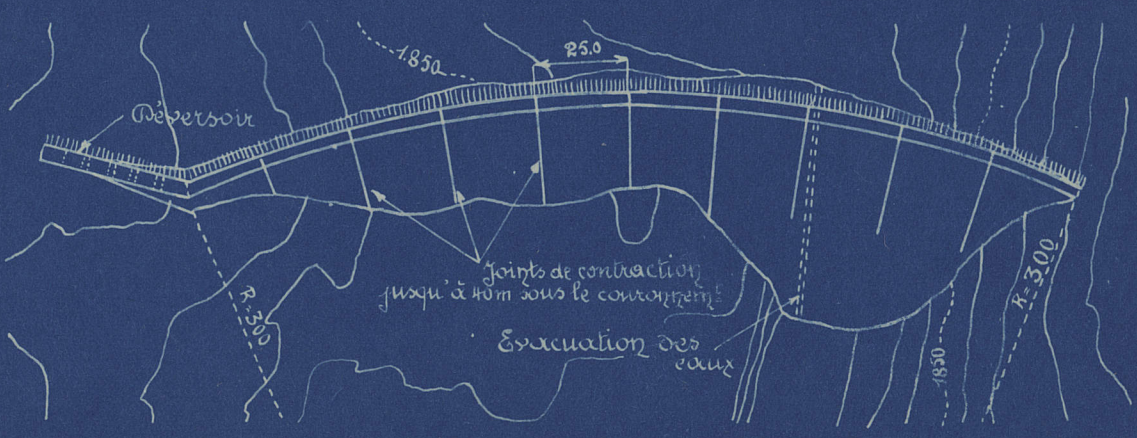 1850
25.0
Déversoir
Joints de contraction
jusqu'à 40m sous le couronnemt
Evacuation des
eaux
R=300
R=300
1850